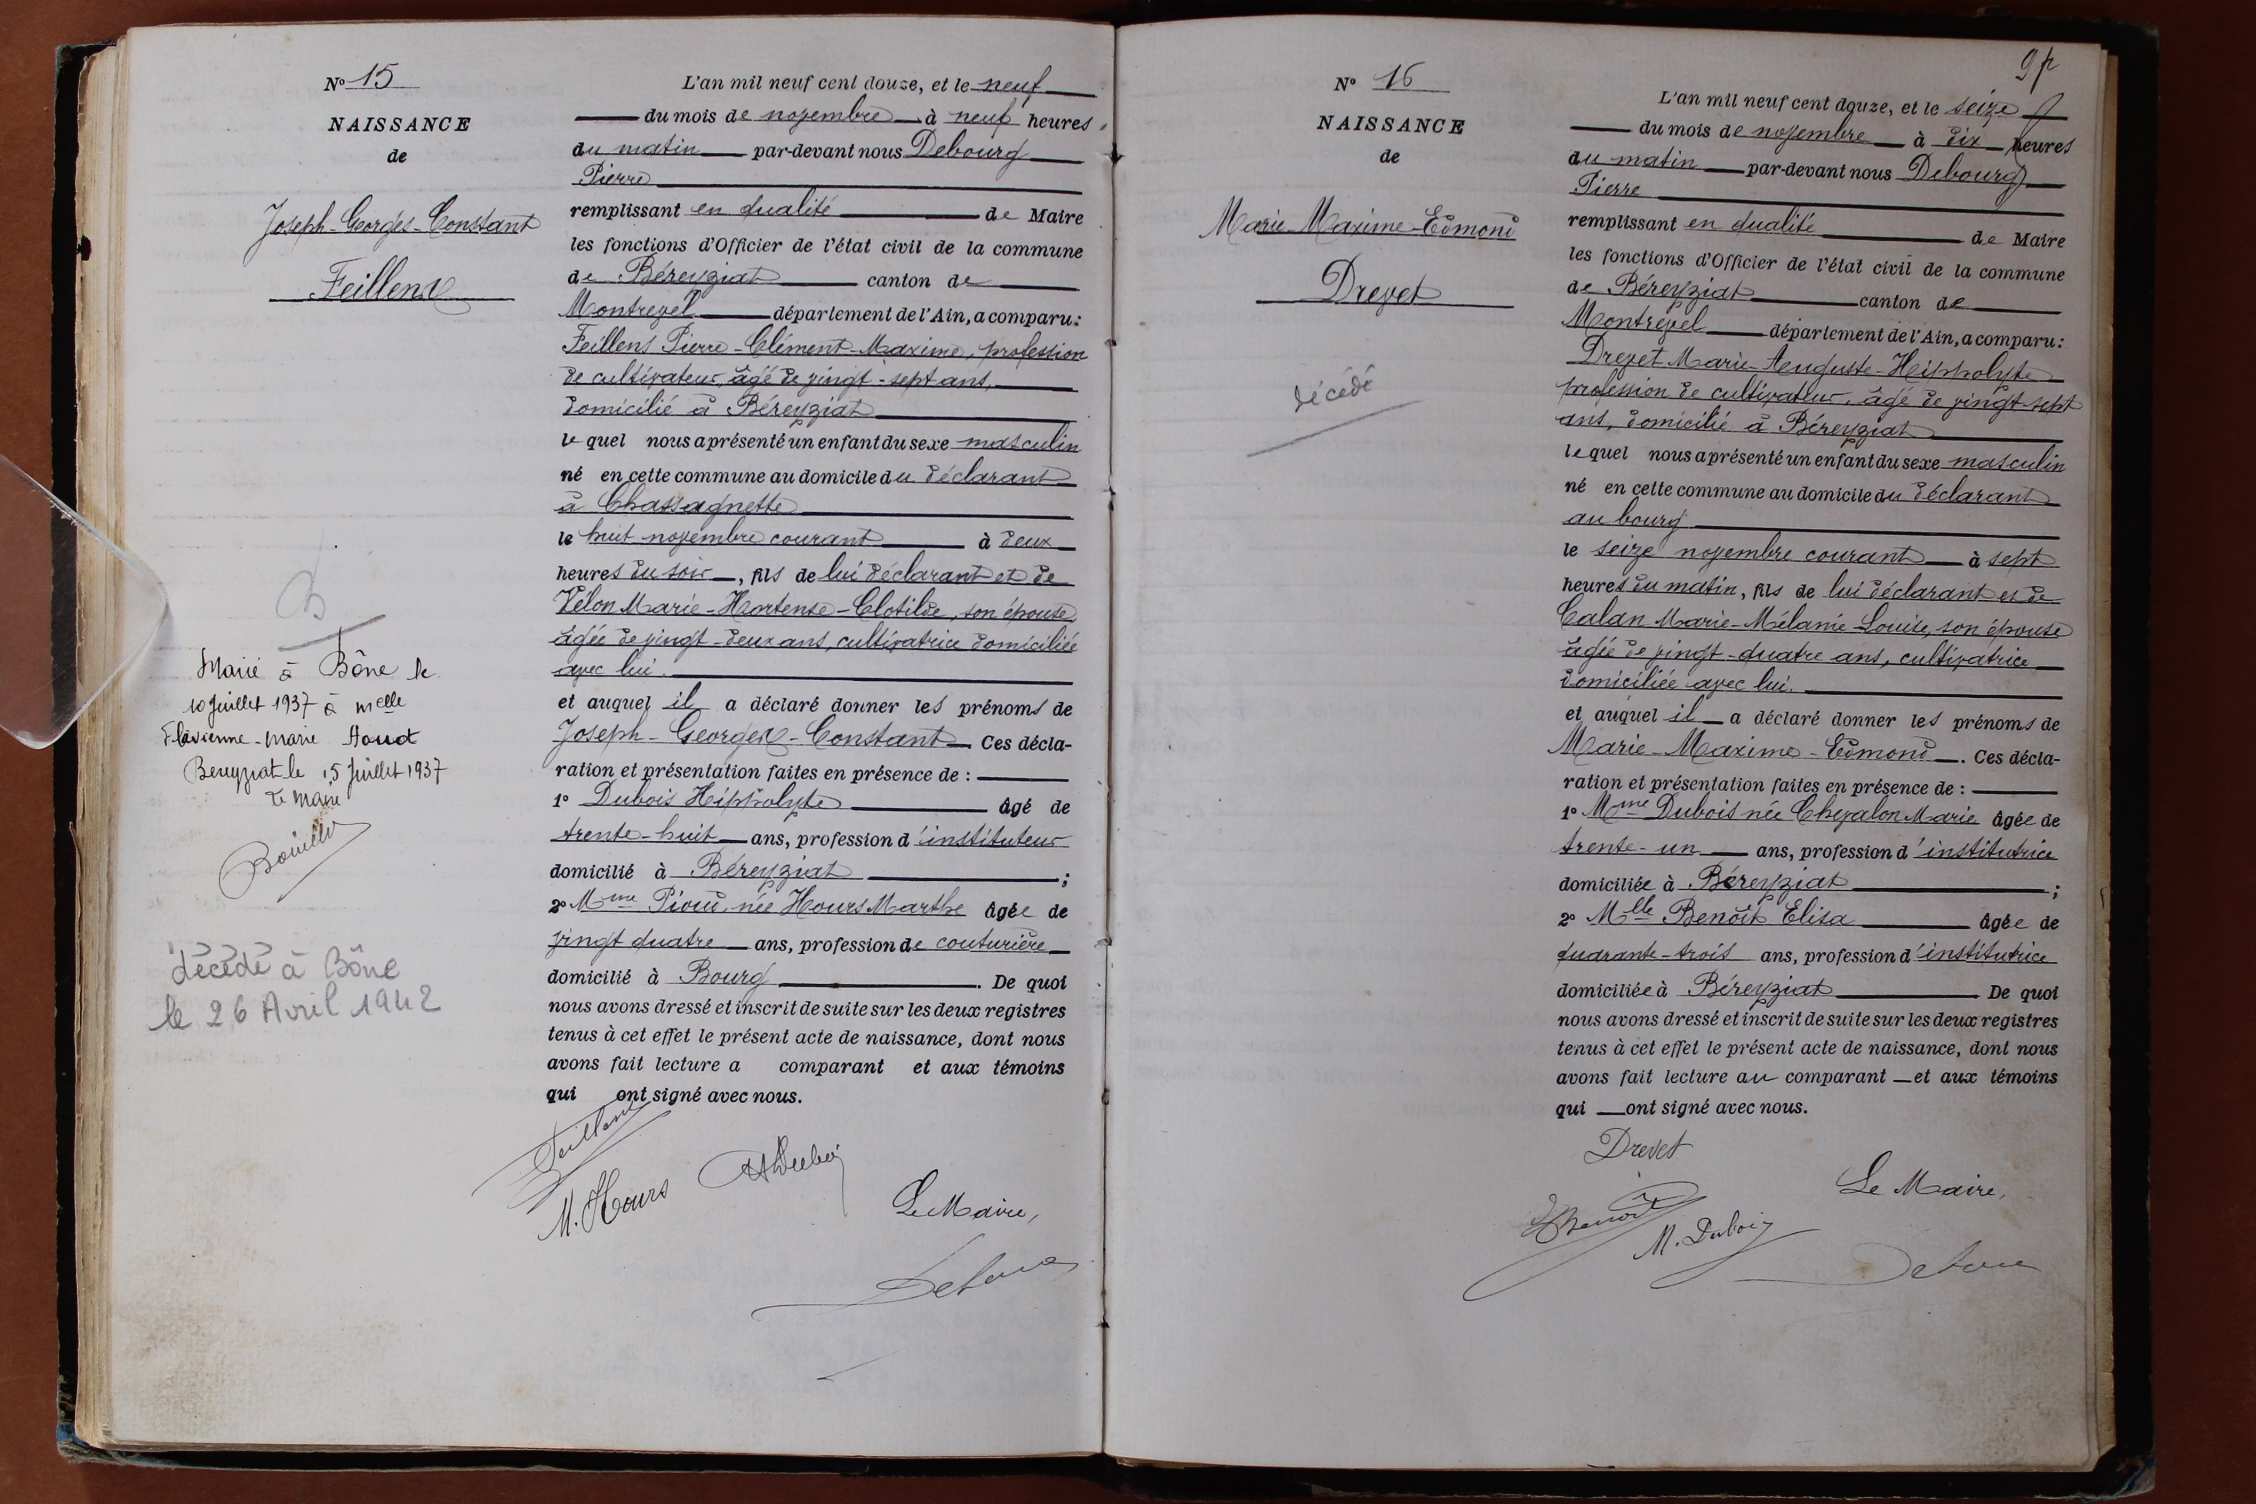 N° 15
NAISSANCE
de
Joseph-Georges-Constant
Feillens
Marié à Bône le
10 Juillet 1937 à Melle
Flavienne-Marie
Bereyziat le 15 Juillet 1937
Le Maire
décédé à Bône
le 26 Avril 1942
L'an mil neuf cent douze, et le neuf
du mois de novembre à neuf heures
du matin par-devant nous Debourg
Pierre
remplissant en qualité de Maire
les fonctions d'Officier de l'état civil de la commune
de Béreyziat canton de
Montrevel département de l'Ain, a comparu:
Feillens Pierre-Clément-Maxime, profession
de cultivateur, âgé de vingt-sept ans,
domicilié à Béreyziat
le quel nous a présenté un enfant du sexe masculin
né en cette commune au domicile du déclarant
à Chassagnette
le huit novembre courant à deux
heures du soir, fils de lui déclarant et de
Vélon Marie-Hortense-Clotilde, son épouse,
âgée de vingt-deux ans, cultivatrice domiciliée
avec lui.
et auquel il a déclaré donner les prénoms de
Joseph-Georges-Constant. Ces décla-
ration et présentation faites en présence de :
1° Dubois Hippolyte âgé de
trente-huit ans, profession d'instituteur
domicilié à Béreyziat ;
2° Mme Pioud, née Hours Marthe âgée de
vingt quatre ans, profession de couturière
domicilié à Bourg. De quoi
nous avons dressé et inscrit de suite sur les deux registres
tenus à cet effet le présent acte de naissance, dont nous
avons fait lecture a comparant et aux témoins
qui ont signé avec nous.
Feillens
M. Hours
H Dubois
Le Maire,
Debourg
9
N° 16
NAISSANCE
de
Marie-Maxime-Edmond
Drevet
décédé
L'an mil neuf cent douze, et le seize
du mois de novembre à dix heures
du matin par-devant nous Debourg
Pierre
remplissant en qualité de Maire
les fonctions d'Officier de l'état civil de la commune
de Béreyziat canton de
Montrevel département de l'Ain, a comparu:
Drevet Marie-Auguste-Hippolyte
profession de cultivateur, âgé de vingt-sept
ans, domicilié à Béreyziat
le quel nous a présenté un enfant du sexe masculin
né en cette commune au domicile du déclarant
au bourg
le seize novembre courant à sept
heures du matin, fils de lui déclarant et de
Calan Marie-Mélanie-Louise, son épouse
âgée de vingt-quatre ans, cultivatrice
domiciliée avec lui.
et auquel il a déclaré donner les prénoms de
Marie-Maxime-Edmond. Ces décla-
ration et présentation faites en présence de :
1° Mme Dubois née Chevalon Marie âgée de
trente-un ans, profession d'institutrice
domiciliée à Béreyziat ;
2° Mlle Benoît Elisa âgée de
quarante-trois ans, profession d'institutrice
domiciliée à Béreyziat De quoi
nous avons dressé et inscrit de suite sur les deux registres
tenus à cet effet le présent acte de naissance, dont nous
avons fait lecture au comparant et aux témoins
qui ont signé avec nous.
Drevet
Benoît
M. Dubois
Le Maire,
Debourg